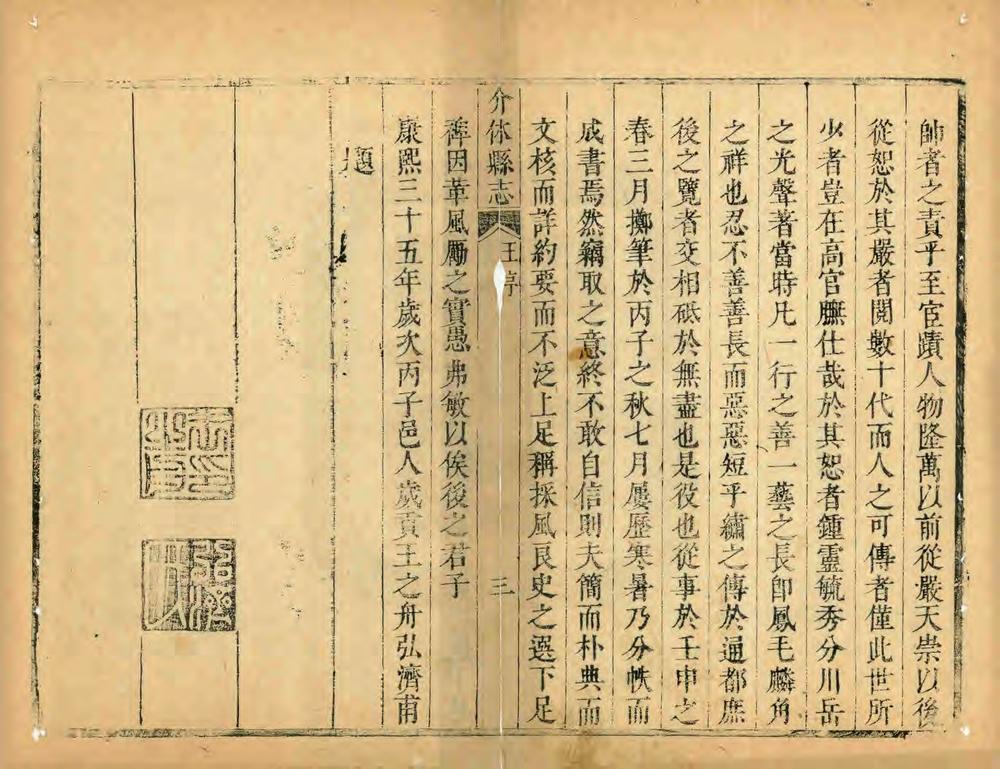 帥者之責乎至宦蹟人物隆萬以前從嚴天崇以後
從恕於其嚴者閱數十代而人之可傳者僅此世所
少者豈在高官膴仕哉於其恕者鍾靈毓秀分川岳
之光聲著當時凡一行之善一藝之長卽鳳毛麟角
之祥也忍不善善長而惡惡短乎繡之傳於通都庶
後之覽者交相砥於無盡也是役也從事於壬申之
春三月擲筆於丙子之秋七月屢歷寒暑乃分帙而
成書焉然竊取之意終不敢自信則夫簡而朴典而
文核而詳約要而不泛上足稱採風良史之選下足
介休縣志 王序 三
裨因革風勵之實愚弗敏以俟後之君子
康熙三十五年歲次丙子邑人歲貢王之舟弘濟甫
題